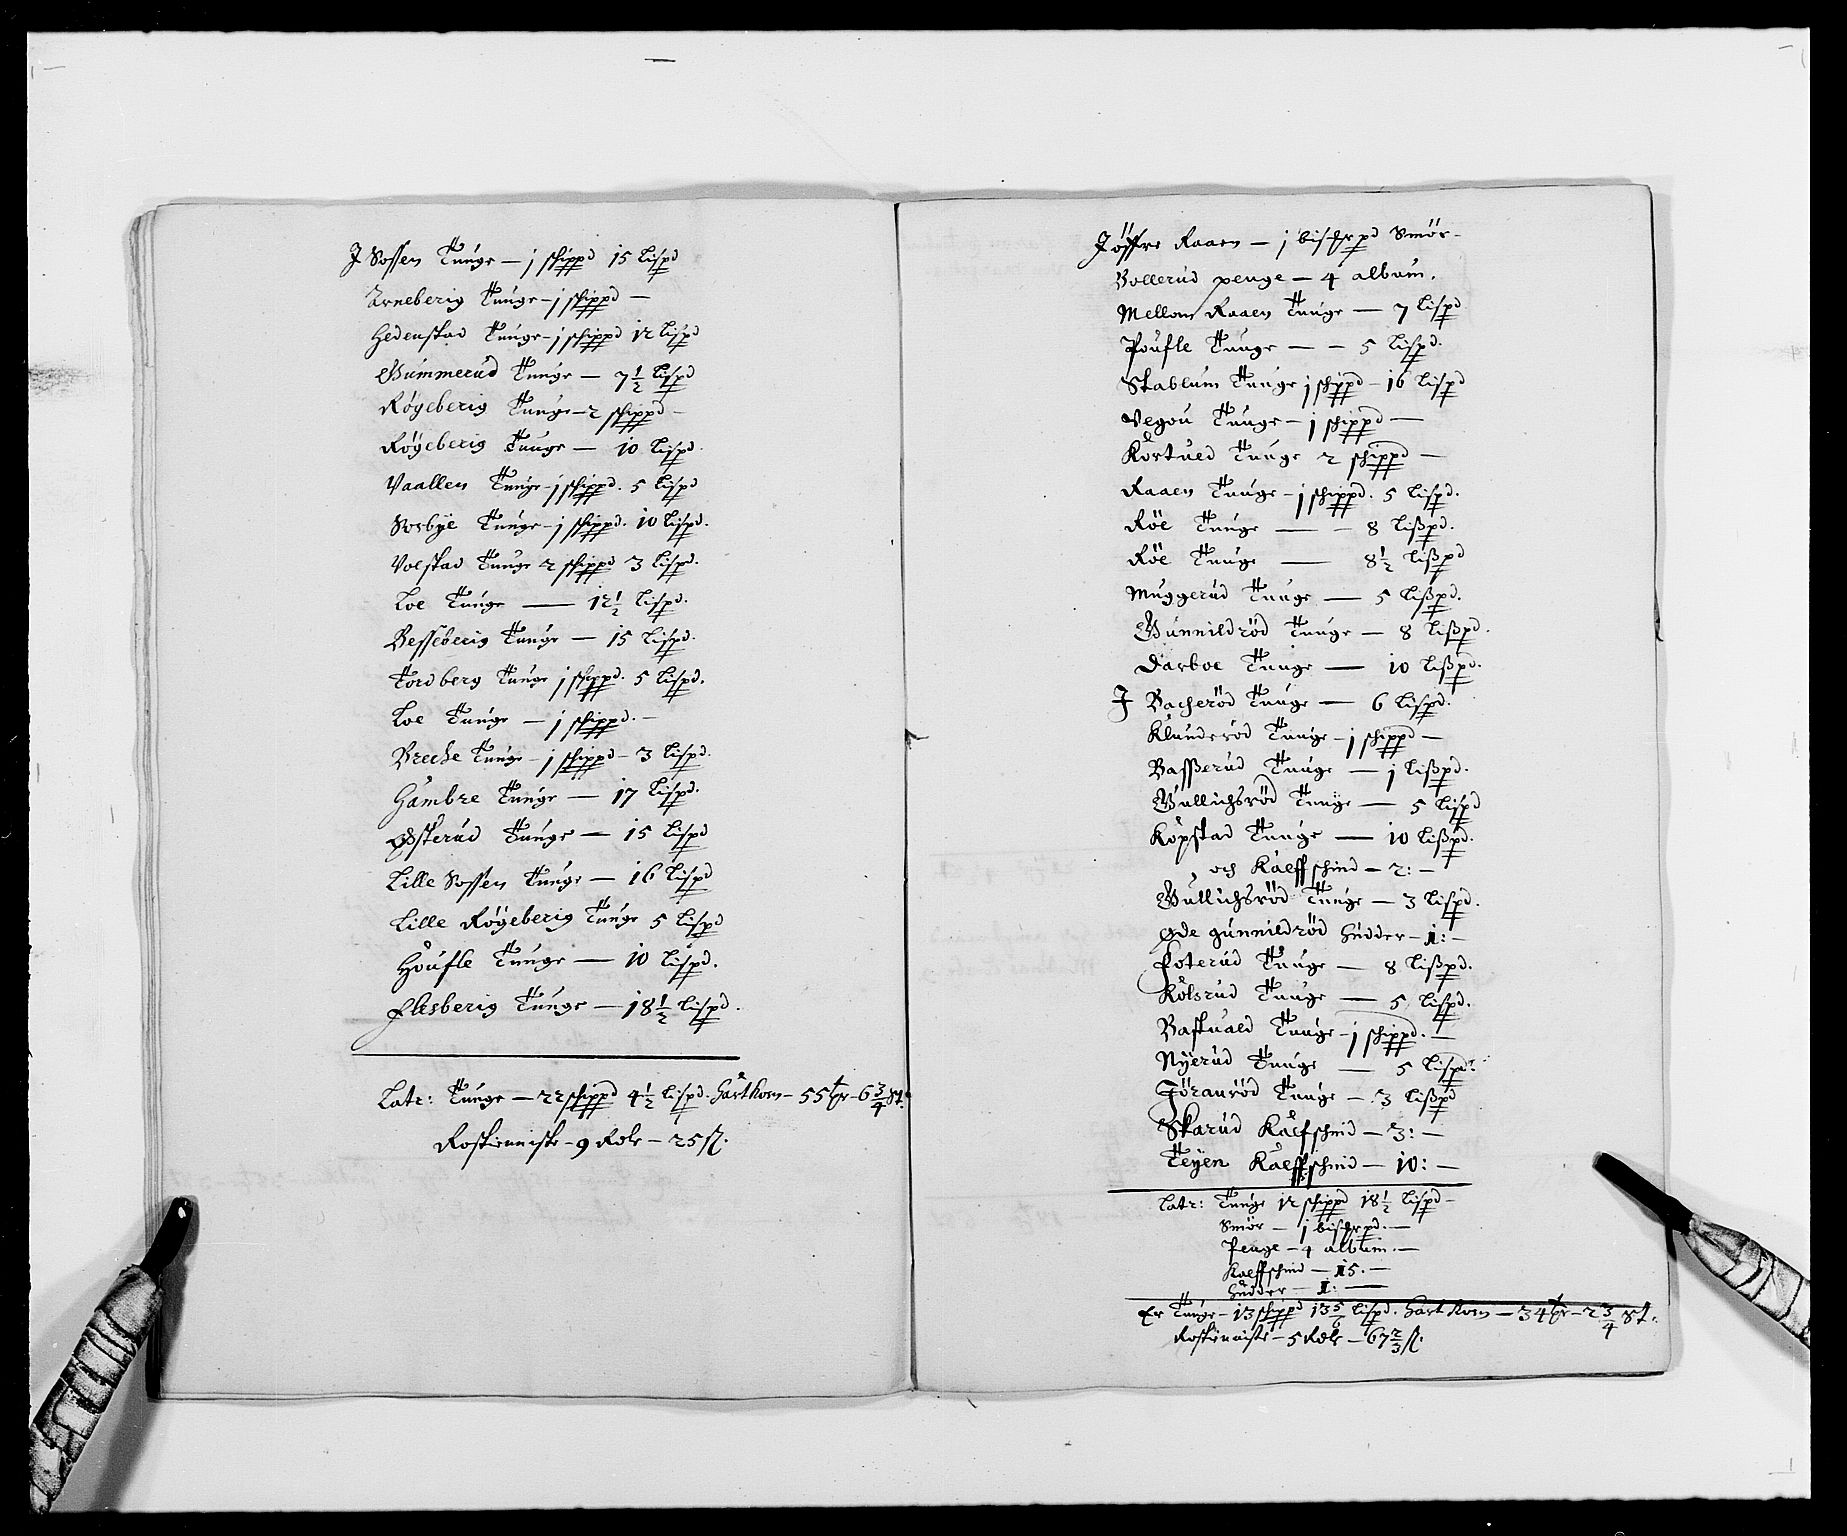 J Sossen Tunge — j schippd 15 Lispd
Arneberig Tunge – j schippd —
Hedenstad Tunge – j schippd 12 Lispd
Gummerud Tunge — 7½ Lispd
Røgeberig Tunge – 2 schippd –
Røgeberig Tunge — 10 Lispd.
Vaallen Tunge – j schippd. 5 Lispd
Sorbye Tunge – j schippd. 10 Lispd.
Volstad Tunge 2 schippd 3 Lispd.
Loe Tunge — 12½ Lispd.
Besseberig Tunge — 15 Lispd.
Tordberg Tunge j schippd. 5 Lispd.
Loe Tunge — j schippd. —
Breche Tunge – j schippd – 3 Lispd.
Hambre Tunge — 17 Lispd.
Østerud Tunge — 15 Lispd
Lille Sossen Tunge — 16 Lispd
Lille Røgeberig Tunge 5 Lispd
Houfle Tunge — 10 Lispd.
Flesberig Tunge — 18½ Lispd.
Latr: Tunge — 22 schippd 4½ Lispd. Hartkorn – 55 tr – 6¾ st.
Rostienniste – 9 Rdlr – 25 s.
J öffre Raaen — j bisfrpd Smör –
Bollerud penge — 4 album.
Mellom Raaen Tunge — 7 Lispd
Foufle Tunge — – 5 Lispd.
Stablum Tunge j schippd – 16 Lispd
Vegou Tunge — j schippd —
Kortued Tunge 2 schippd —
Raaen Tunge – j schippd. 5 Lispd.
Röe Tunge — – 8 Lißpd.
Röe Tunge — 8½ Lißpd
Muggerud Tunge — 5 Lißpd.
Gunnildröd Tunge — 8 Lißpd.
Darboe Tunge — 10 Lißpd.
J Bacheröd Tunge — 6 Lispd.
Klunderöd Tunge – j schippd —
Basserud Tunge — j Lißpd.
Gullichsröd Tunge — 5 Lispd
Köpstad Tunge — 10 Lißpd.
och Kalffschind — 2: –
Gullichsröd Tunge — 3 Lispd.
Øde gunnildröd Hudder – 1: –
Foterud Tunge — 8 Lißpd.
Kolsrud Tunge — 5 Lispd.
Bastuald Tunge – j schippd. —
Nyerud Tunge — 5 Lispd.
Jöranröd Tunge — 3 Lißpd
Skarud Kalfschind — 3: –
Teyen Kalffschind — 10: –
Latr: Tunge 12 schippd 18½ Lispd –
Smör — j bisfrpd. —
Penge – 4 album. —
Kalffschind — 15. —
Hudder — 1: —
Er Tunge – 13 schippd 13 5/6 Lispd. Hart Korn — 34 tr – 2¾ st.
Rostienniste – 5 Rdlr – 67⅔ s.